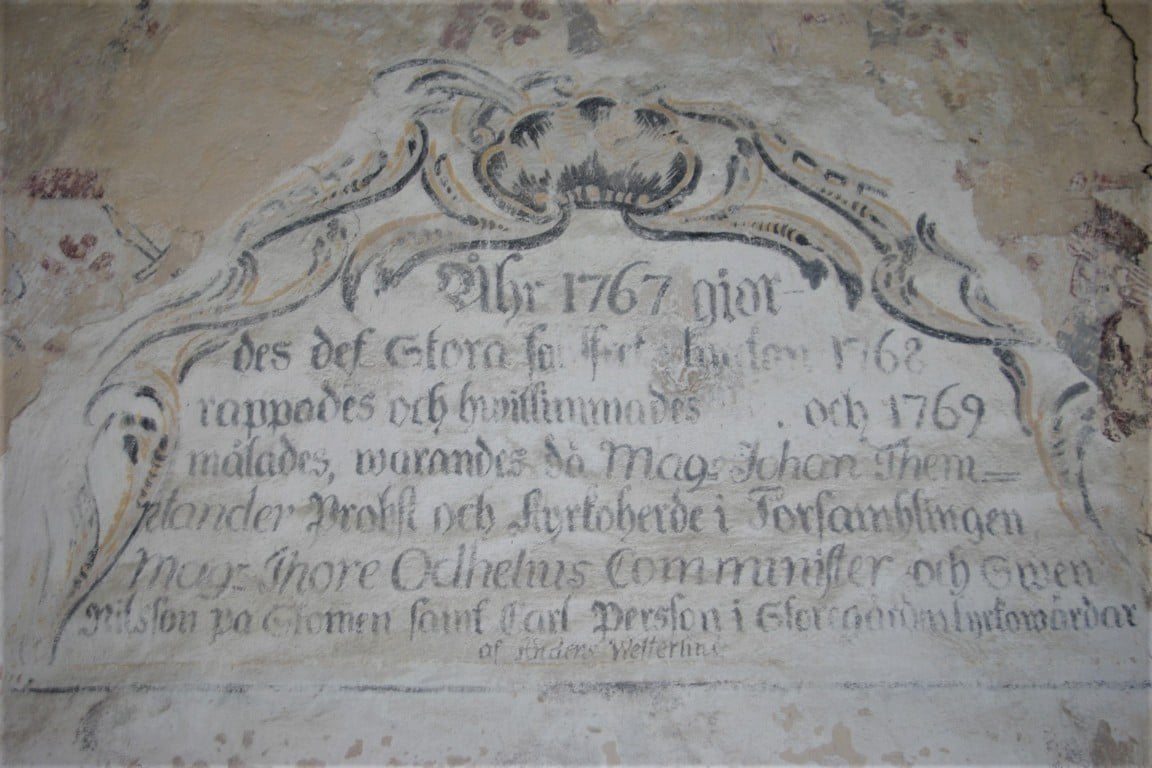 Åhr 1767 gjor-
des det Stora 1768
rappades och hwitlimmades och 1769
målades, warandes då Mag: Johan Them=
lander Probst och Kyrkoherde i Forsamblingen
Mag: Thore Odhelius Comminister och Swen
Nilsson på Stomen samt Carl Persson i Storegården kyrkowärdar
af Anders Wetterlins